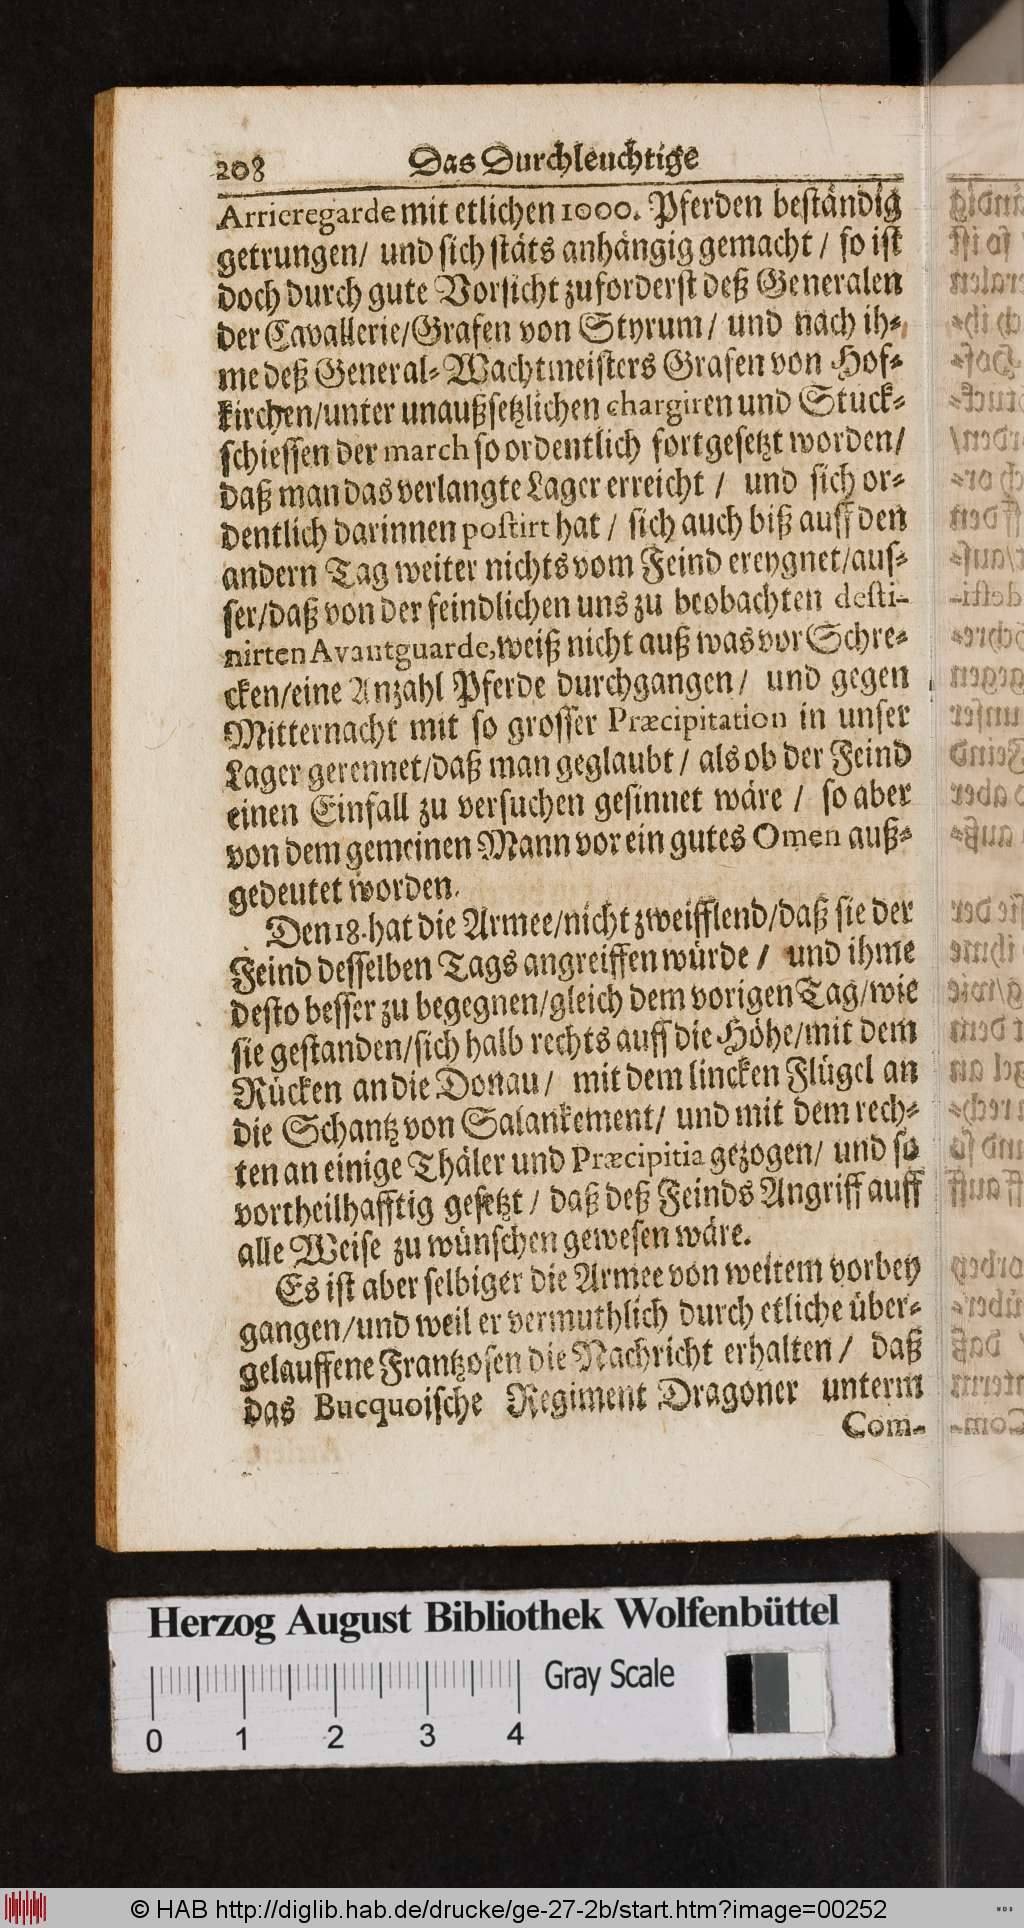 208 Das Durchleuchtige
Arrieregarde mit etlichen 1000. Pferden beständig
getrungen/ und sich stäts anhängig gemacht / so ist
doch durch gute Vorsicht zuforderst deß Generalen
der Cavallerie/Grafen von Styrum/ und nach ih-
me deß General-Wachtmeisters Grafen von Hof-
kirchen/unter unaußsetzlichen chargiren und Stuck-
schiessen der march so ordentlich fortgesetzt worden/
daß man das verlangte Lager erreicht / und sich or-
dentlich darinnen postirt hat / sich auch biß auff den
andern Tag weiter nichts vom Feind ereygnet/aus-
ser/daß von der feindlichen uns zu beobachten desti-
nirten Avantguarde, weiß nicht auß was vor Schre-
cken/eine Anzahl Pferde durchgangen/ und gegen
Mitternacht mit so grosser Præcipitation in unser
Lager gerennet/daß man geglaubt / als ob der Feind
einen Einfall zu versuchen gesinnet wäre / so aber
von dem gemeinen Mann vor ein gutes Omen auß-
gedeutet worden.
Den 18. hat die Armee/nicht zweifflend/daß sie der
Feind desselben Tags angreiffen würde / und ihme
desto besser zu begegnen/gleich dem vorigen Tag/wie
sie gestanden/sich halb rechts auff die Höhe/mit dem
Rücken an die Donau/ mit dem lincken Flügel an
die Schantz von Salankement/ und mit dem rech-
ten an einige Thäler und Præcipitia gezogen/ und so
vortheilhafftig gesetzt / daß deß Feinds Angriff auff
alle Weise zu wünschen gewesen wäre.
Es ist aber selbiger die Armee von weitem vorbey
gangen/und weil er vermuthlich durch etliche über-
gelauffene Frantzosen die Nachricht erhalten / daß
das Bucquoische Regiment Dragoner unterm
Com-
Herzog August Bibliothek Wolfenbüttel
Gray Scale
0 1 2 3 4
© HAB http://diglib.hab.de/drucke/ge-27-2b/start.htm?image=00252